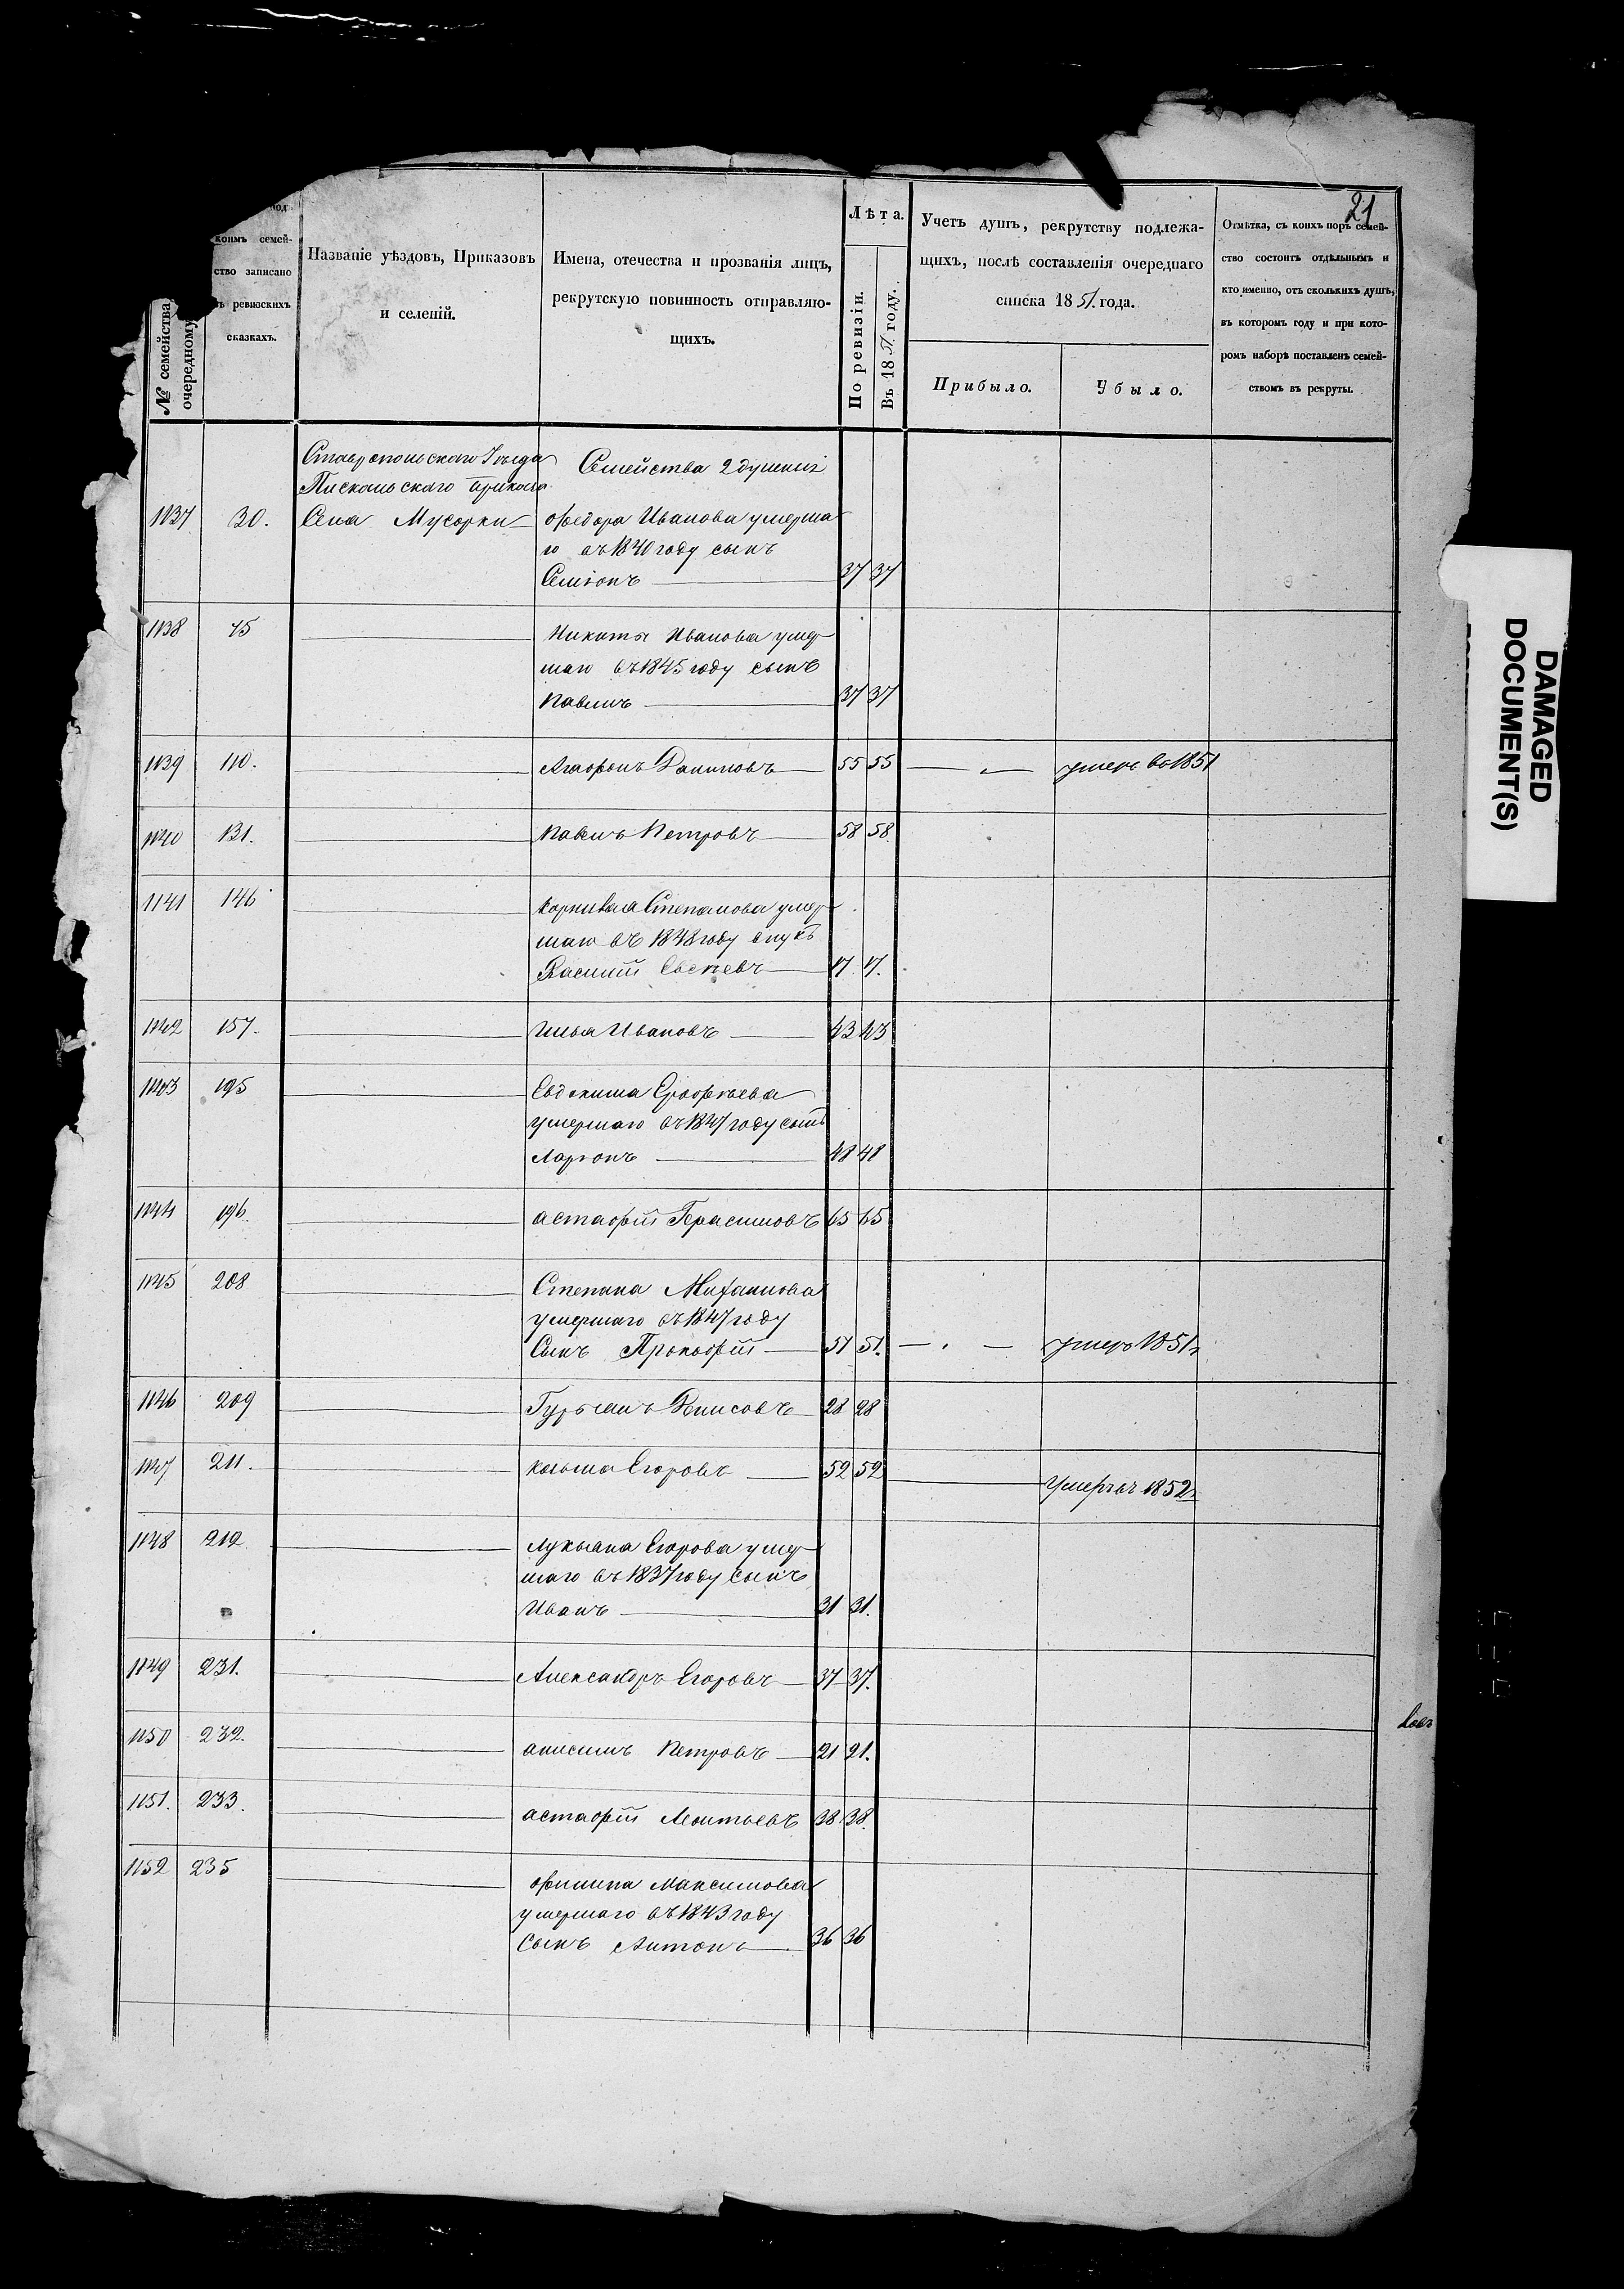 21
№ семейства
очередному
под
коимъ семей-
ство записано
ревизскихъ
сказкахъ.
Названіе уѣздовъ, Приказовъ
и селеній.
Имена, отечества и прозванія лицъ,
рекрутскую повинность отправляю-
щихъ.
Лѣта.
По ревизіи.
Въ 1851 году.
Учетъ душъ, рекрутству подлежа-
щихъ, послѣ составленія очереднаго
списка 1851 года.
Прибыло.
Убыло.
Отмѣтка, съ коихъ поръ семей-
ство состоитъ отдѣльнымъ и
кто именно, отъ сколькихъ душъ,
въ которомъ году и при кото-
ромъ наборѣ поставленъ семей-
ствомъ въ рекруты.
Ставропольскаго Уѣзда
Пискальскаго приказа
Семейства 2 душныя
1137 30. Села Мусорки Ѳедора Иванова умерша
го въ 1840 году сынъ
Семіонъ 37 37
1138 75 Никиты Иванова умер
шаго въ 1845 году сынъ
Павелъ 37 37
1139 110. Агафонъ Даниловъ 55 55 умеръ въ 1851
1140 131. Павелъ Петровъ 58 58.
1141 146 Корнила Степанова умер
шаго въ 1848 году внукъ
Василій Евсѣевъ 17 17.
1142 157. Илья Ивановъ 43 43
1143 195 Евдокима Ерофѣева
умершаго въ 1847 году сынъ
Ларіонъ 48 48
1144 196. Астафій Герасимовъ 65 65
1145 208 Степана Михаилова
умершаго въ 1847 году
Сынъ Прокофій 51 51. умеръ 1851 г
1146 209 Гурьянъ Денисовъ 28 28
1147 211. Козьма Егоровъ 52 52 Умеръ въ 1852 г
1148 212 Лукьяна Егорова умер
шаго въ 1837 году сынъ
Иванъ 31 31.
1149 231. Александръ Егоровъ 37 37.
1150 232. Анисимъ Петровъ 21 21.
1151. 233. Астафій Леонтьевъ 38. 38.
1152 235 Филипа Максимова
умершаго въ 1843 году
Сынъ Антонъ 36 36
DAMAGED
DOCUMENT(S)